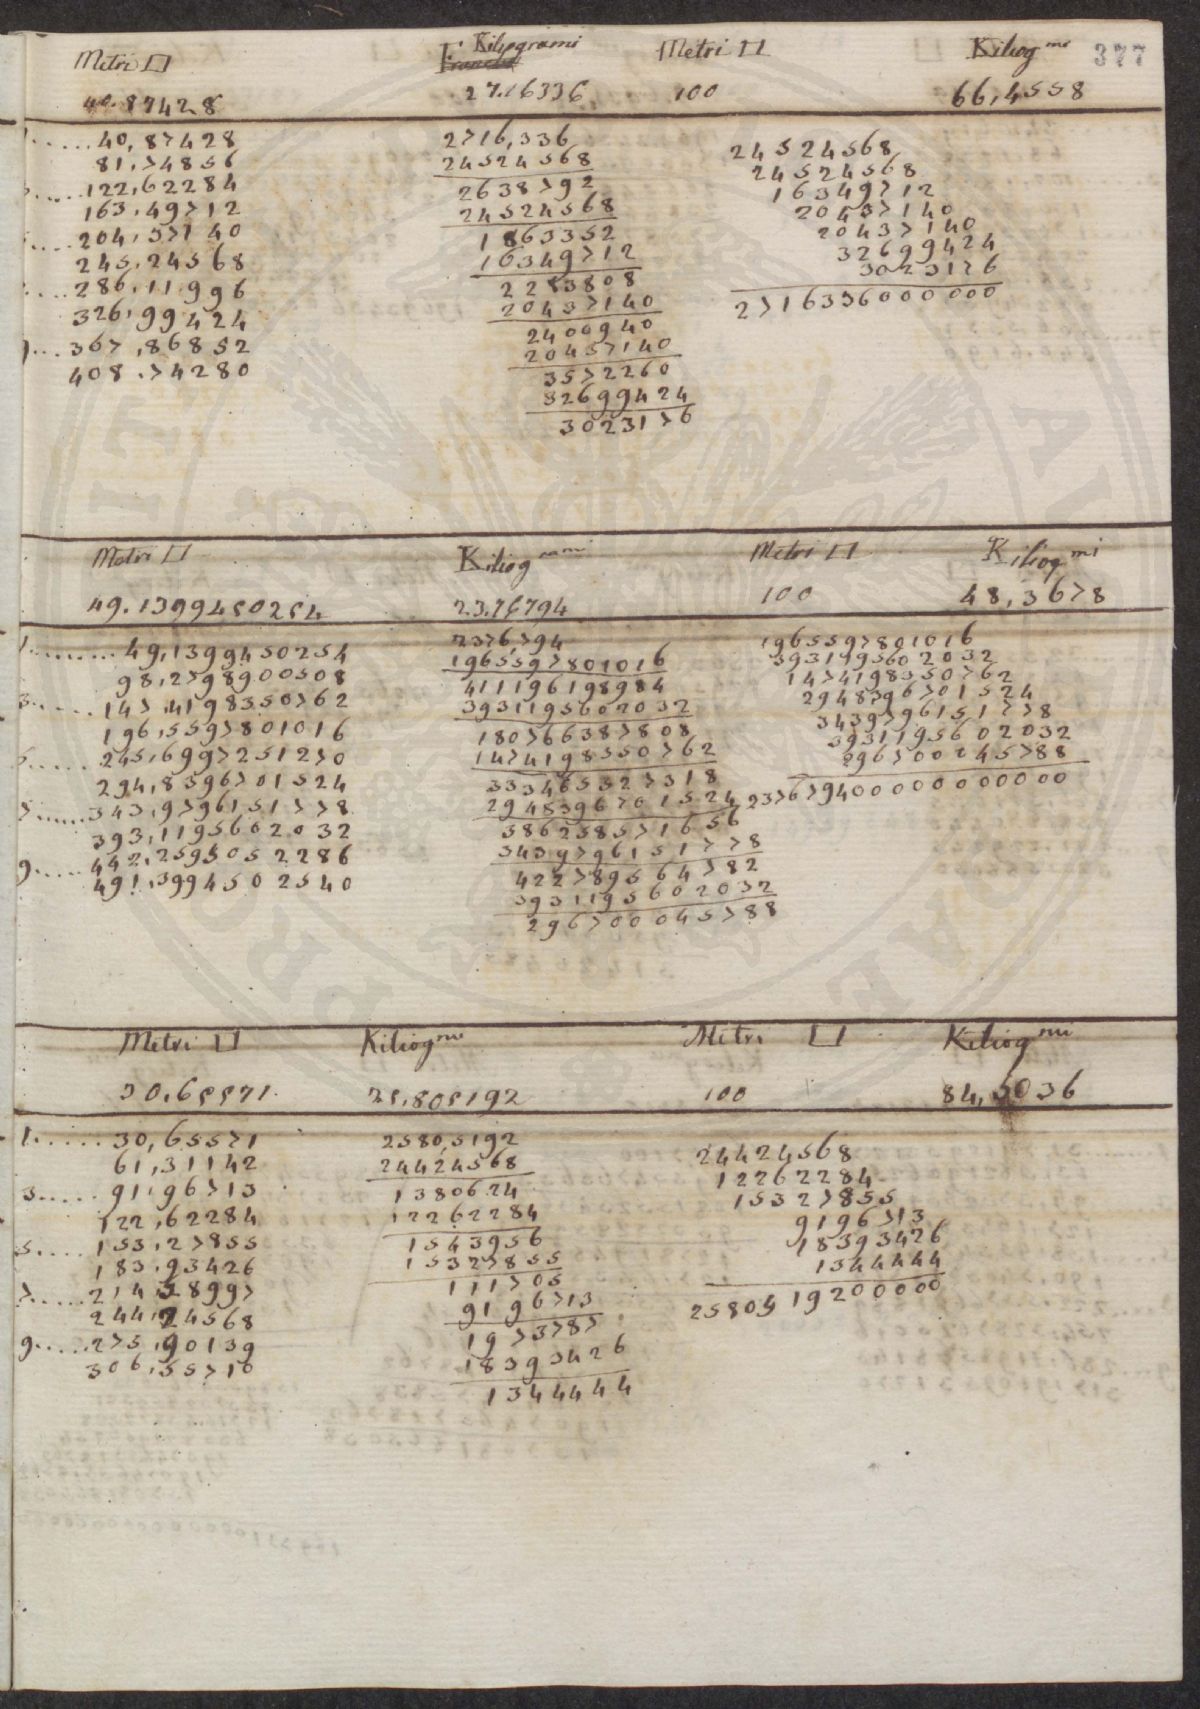 377
Metri □ Kiliogrami Metri □ Kiliog mi
40.87428 27.16336 100 66,4558
1.....40,87428
81,74856
3.....122,62284
163,49712
5.....204,37140
245,24568
7....286,11996
326,99424
9...367,86852
408.74280
2716,336
24524568
2638792
24524568
1863352
16349712
2283808
20437140
2400940
20437140
3572260
32699424
3023176
24524568
24524568
16349712
20437140
20437140
32699424
3023176
2716336000000
Metri □ Kiliog rami Metri □ Kiliog mi
49.139945 0254 23.76794 100 48,3678
1.........49,1399450254
98,2798900508
3......147,4198350762
196,5597801016
5......245,6997251270
294,8396701524
7......343,9796151778
393,1195602032
9.....442,2595052286
491,3994502540
2376,794
1965597801016
411196198984
3931195602032
180766387808
1474198350762
333465327318
2948396701524
386258571656
3439796151778
422789564782
3931195602032
296700045788
1965597801016
3931195602032
1474198350762
2948396701524
3439796151778
3931195602032
296700045788
2376794000000000
Metri □ Kiliog mi Metri □ Kiliog mi
30.65571 25.805192 100 84,3036
1......30,65571
61,31142
3.....91,96713
122,62284
5.....153,27855
183,93426
7......214,58997
244,24568
9.....275,90139
306,55710
2580,5192
24424568
1380624
12262284
1543956
15327855
111705
9196713
1973787
18393426
1344444
24424568
12262284
15327855
9196713
18393426
1344444
2580519200000